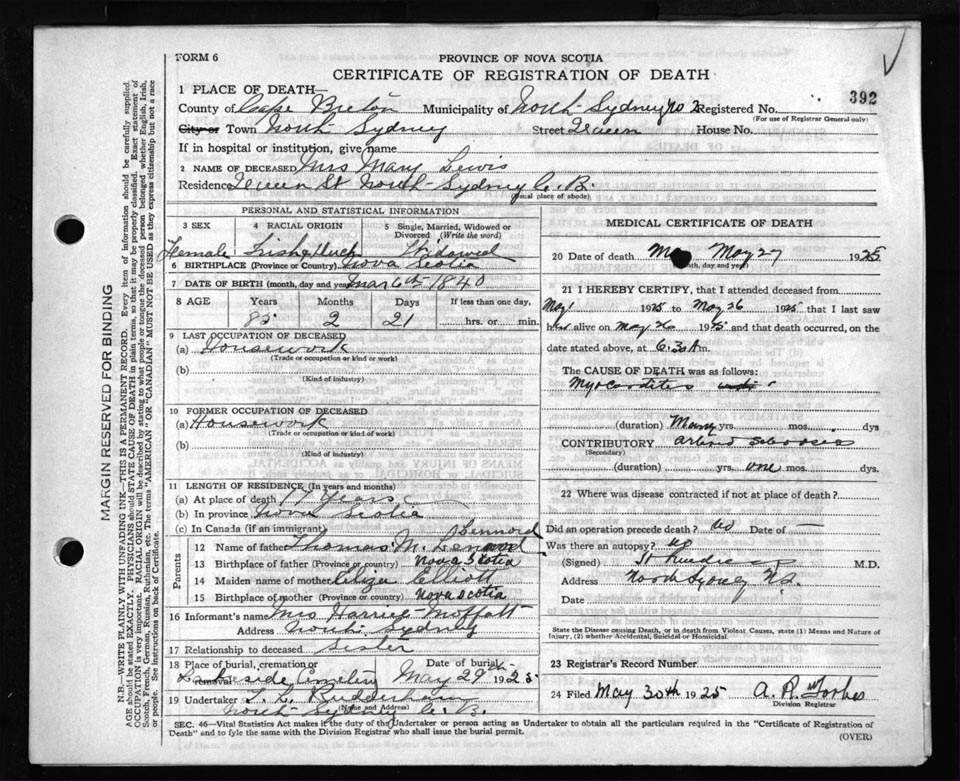 FORM 6
PROVINCE OF NOVA SCOTIA
CERTIFICATE OF REGISTRATION OF DEATH
392
1 PLACE OF DEATH—
County of Cape Breton Municipality of North Sydney No 2 Registered No.
(For use of Registrar General only)
City or Town North Sydney Street Queen House No.
If in hospital or institution, give name
2 NAME OF DECEASED Mrs Mary Lewis
Residence Queen St North Sydney C. B.
(usual place of abode)
PERSONAL AND STATISTICAL INFORMATION
3 SEX 4 RACIAL ORIGIN 5 Single, Married, Widowed or Divorced (Write the word)
Female Irish & Dutch Widowed
6 BIRTHPLACE (Province or Country) Nova Scotia
7 DATE OF BIRTH (month, day and year) Mar 6th 1840
8 AGE Years Months Days If less than one day,
85 2 21 hrs. or min.
9 LAST OCCUPATION OF DECEASED
(a) Housework
(Trade or occupation or kind of work)
(b)
(Kind of industry)
10 FORMER OCCUPATION OF DECEASED
(a) Housework
(Trade or occupation or kind of work)
(b)
(Kind of industry)
11 LENGTH OF RESIDENCE (In years and months)
(a) At place of death 17 Years
(b) In province Nova Scotia
(c) In Canada (if an immigrant)
Parents
12 Name of father Thomas M.
13 Birthplace of father (Province or Country) Nova Scotia
14 Maiden name of mother Eliza Elliott
15 Birthplace of mother (Province or Country) Nova Scotia
16 Informant's name Mrs Harriet Moffatt
Address North Sydney
17 Relationship to deceased Sister
18 Place of burial, cremation or removal Date of burial
Lakeside Cemetery May 29th 1925
19 Undertaker F. L. Rudderham
(Name and Address)
North Sydney C. B.
MEDICAL CERTIFICATE OF DEATH
20 Date of death May 27 1925
(month, day and year)
21 I HEREBY CERTIFY, that I attended deceased from
May 1 1925 to May 26 1925 that I last saw
her alive on May 26 1925 and that death occurred, on the
date stated above, at 6.30 A m.
The CAUSE OF DEATH was as follows:
Myocarditis
(duration) Many yrs. mos. dys
CONTRIBUTORY
(Secondary)
(duration) yrs. one mos. dys.
22 Where was disease contracted if not at place of death?
Did an operation precede death? no Date of —
Was there an autopsy? no
(Signed) M.D.
Address North Sydney N.S.
Date
State the Disease causing Death, or in death from Violent Causes, state (1) Means and Nature of Injury, (2) whether Accidental, Suicidal or Homicidal.
23 Registrar's Record Number
24 Filed May 30th 1925 A. R. Forbes
Division Registrar
SEC. 46—Vital Statistics Act makes it the duty of the Undertaker or person acting as Undertaker to obtain all the particulars required in the "Certificate of Registration of
Death" and to fyle the same with the Division Registrar who shall issue the burial permit. (OVER)
MARGIN RESERVED FOR BINDING
N.B.—WRITE PLAINLY WITH UNFADING INK—THIS IS A PERMANENT RECORD. Every item of information should be carefully supplied.
AGE should be stated EXACTLY. PHYSICIANS should STATE CAUSE OF DEATH in plain terms, so that it may be properly classified. Exact statement of
OCCUPATION is very important. RACIAL ORIGIN will be described by stating to what people or tongue the deceased person belonged whether English, Irish,
Scotch, French, German, Russian, Ruthenian, etc. The terms "AMERICAN" OR "CANADIAN" MUST NOT BE USED as they express citizenship but not a race
or people. See instructions on back of Certificate.